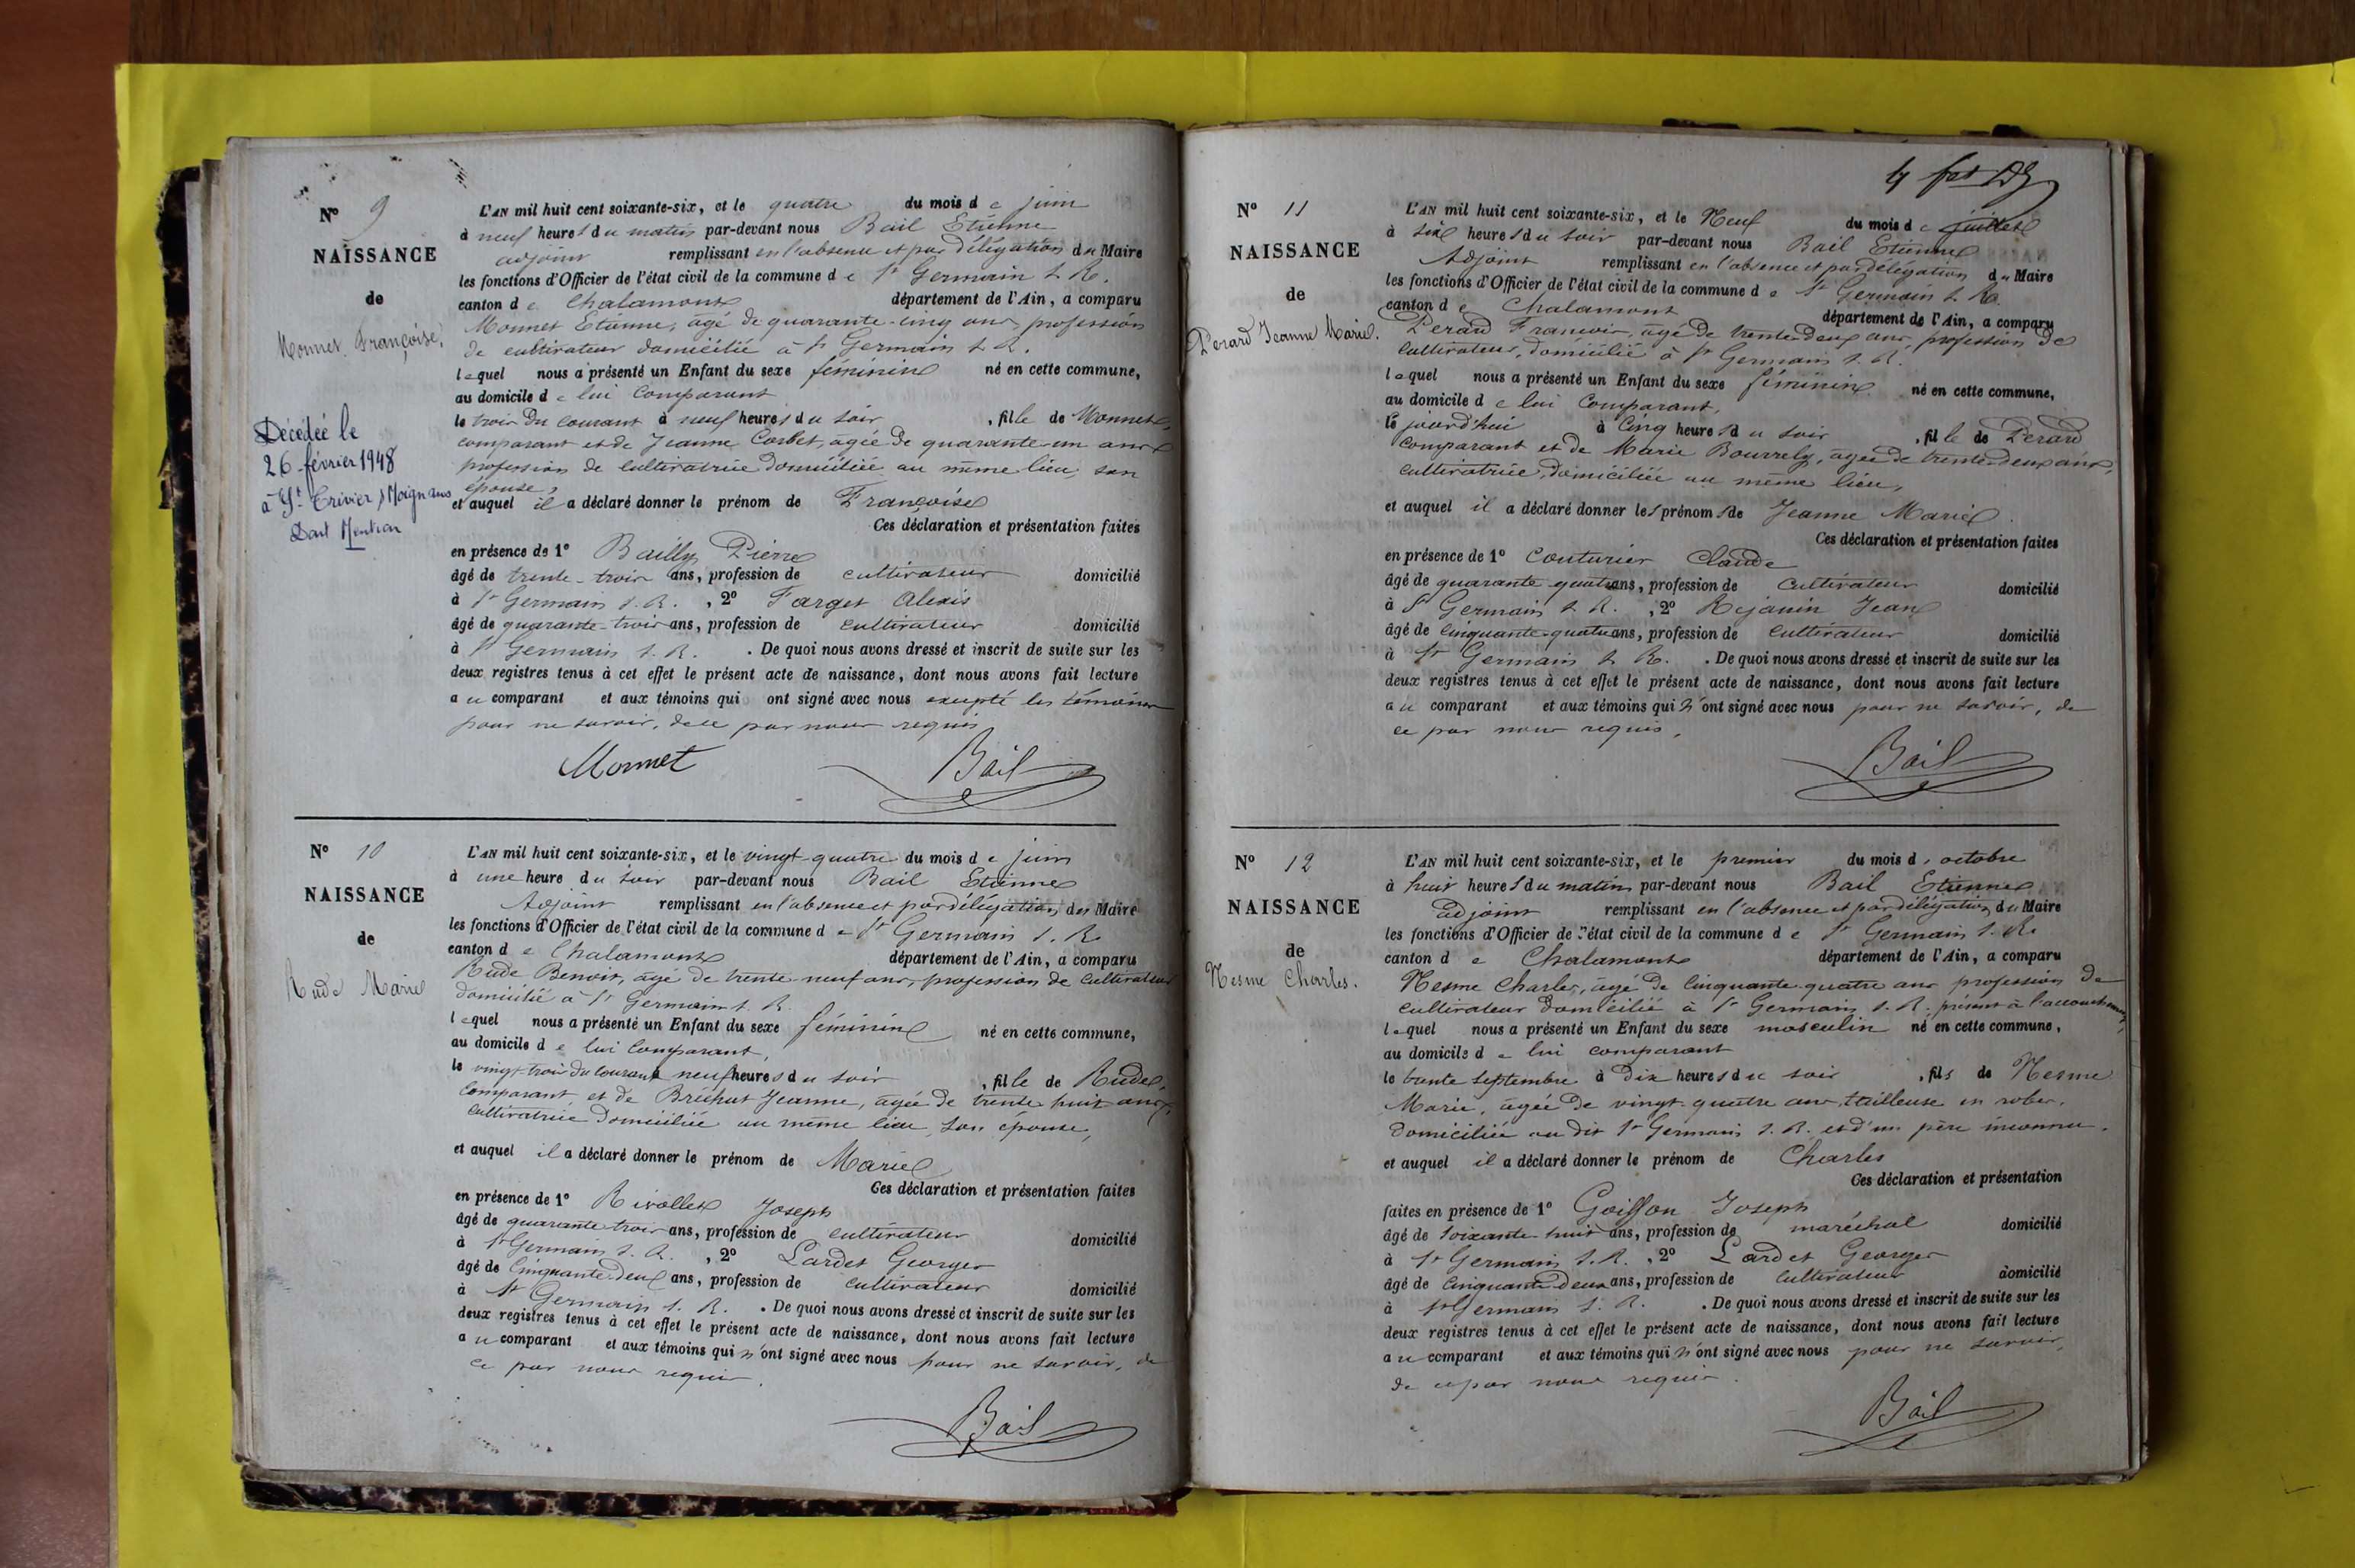 N° 9
NAISSANCE
de
Monnet Françoise
Décédée le
26 février 1948
à St Trivier s/Moignans
Dont Mention
L'AN mil huit cent soixante-six, et le quatre du mois de juin
à neuf heures du matin par-devant nous Bail Etienne
adjoint remplissant en l'absence et par délégation du Maire
les fonctions d'Officier de l'état civil de la commune de St Germain s. R.
canton de Chalamont département de l'Ain, a comparu
Monnet Etienne, âgé de quarante-cinq ans, profession
de cultivateur domicilié à St Germain s. R.
lequel nous a présenté un Enfant du sexe féminin né en cette commune,
au domicile de lui comparant
le trois du courant à neuf heures du soir, fille de Monnet,
comparant et de Jeanne Corbet, âgée de quarante-un ans
profession de cultivatrice domiciliée au même lieu, son
épouse,
et auquel il a déclaré donner le prénom de Françoise
Ces déclaration et présentation faites
en présence de 1° Bailly Pierre
âgé de trente-trois ans, profession de cultivateur domicilié
à St Germain s. R. , 2° Farget Alexis
âgé de quarante-trois ans, profession de cultivateur domicilié
à St Germain s. R. . De quoi nous avons dressé et inscrit de suite sur les
deux registres tenus à cet effet le présent acte de naissance, dont nous avons fait lecture
au comparant et aux témoins qui ont signé avec nous excepté les témoins
pour ne savoir, de ce par nous requis
Monnet Bail
N° 10
NAISSANCE
de
Rude Marie
L'AN mil huit cent soixante-six, et le vingt-quatre du mois de juin
à une heure du soir par-devant nous Bail Etienne
Adjoint remplissant en l'absence et par délégation du Maire
les fonctions d'Officier de l'état civil de la commune de St Germain s. R.
canton de Chalamont département de l'Ain, a comparu
Rude Benoit, âgé de trente-neuf ans, profession de cultivateur
domicilié à St Germain s. R.
lequel nous a présenté un Enfant du sexe féminin né en cette commune,
au domicile de lui comparant,
le vingt-trois du courant neuf heures du soir, fille de Rude,
comparant et de Bréchut Jeanne, âgée de trente-huit ans,
cultivatrice domiciliée au même lieu, son épouse,
et auquel il a déclaré donner le prénom de Marie
Ces déclaration et présentation faites
en présence de 1° Rivollet Joseph
âgé de quarante-trois ans, profession de cultivateur domicilié
à St Germain s. R. , 2° Lardet Georges
âgé de cinquante-deux ans, profession de cultivateur domicilié
à St Germain s. R. . De quoi nous avons dressé et inscrit de suite sur les
deux registres tenus à cet effet le présent acte de naissance, dont nous avons fait lecture
au comparant et aux témoins qui n'ont signé avec nous pour ne savoir, de
ce par nous requis.
Bail
N° 11
NAISSANCE
de
Perard Jeanne Marie.
L'AN mil huit cent soixante-six, et le Neuf du mois de juillet
à six heures du soir par-devant nous Bail Etienne
Adjoint remplissant en l'absence et par délégation du Maire
les fonctions d'Officier de l'état civil de la commune de St Germain s. R.
canton de Chalamont département de l'Ain, a comparu
Perard François, âgé de trente-deux ans, profession de
cultivateur, domicilié à St Germain s. R.
lequel nous a présenté un Enfant du sexe féminin né en cette commune,
au domicile de lui comparant,
le jourd'hui à cinq heures du soir, fille de Perard
comparant et de Marie Bourrely, âgée de trente-deux ans,
cultivatrice, domiciliée au même lieu,
et auquel il a déclaré donner les prénoms de Jeanne Marie.
Ces déclaration et présentation faites
en présence de 1° Couturier Claude
âgé de quarante-quatre ans, profession de cultivateur domicilié
à St Germain s. R. , 2° Rejanin Jean
âgé de cinquante-quatre ans, profession de cultivateur domicilié
à St Germain s. R. . De quoi nous avons dressé et inscrit de suite sur les
deux registres tenus à cet effet le présent acte de naissance, dont nous avons fait lecture
au comparant et aux témoins qui n'ont signé avec nous pour ne savoir, de
ce par nous requis.
Bail
N° 12
NAISSANCE
de
Nesme Charles.
L'AN mil huit cent soixante-six, et le premier du mois d'octobre
à huit heures du matin par-devant nous Bail Etienne
adjoint remplissant en l'absence et par délégation du Maire
les fonctions d'Officier de l'état civil de la commune de St Germain s. R.
canton de Chalamont département de l'Ain, a comparu
Nesme Charles, âgé de cinquante-quatre ans profession de
cultivateur domicilié à St Germain s. R. présent à l'accouchement,
lequel nous a présenté un Enfant du sexe masculin né en cette commune,
au domicile de lui comparant
le trente septembre à dix heures du soir, fils de Nesme
Marie, âgée de vingt-quatre ans, tailleuse en robes,
domiciliée au dit St Germain s. R. et d'un père inconnu.
et auquel il a déclaré donner le prénom de Charles
Ces déclaration et présentation
faites en présence de 1° Goiffon Joseph
âgé de soixante-huit ans, profession de maréchal domicilié
à St Germain s. R. , 2° Lardet Georges
âgé de cinquante-deux ans, profession de cultivateur domicilié
à St Germain s. R. . De quoi nous avons dressé et inscrit de suite sur les
deux registres tenus à cet effet le présent acte de naissance, dont nous avons fait lecture
au comparant et aux témoins qui n'ont signé avec nous pour ne savoir,
de ce par nous requis.
Bail